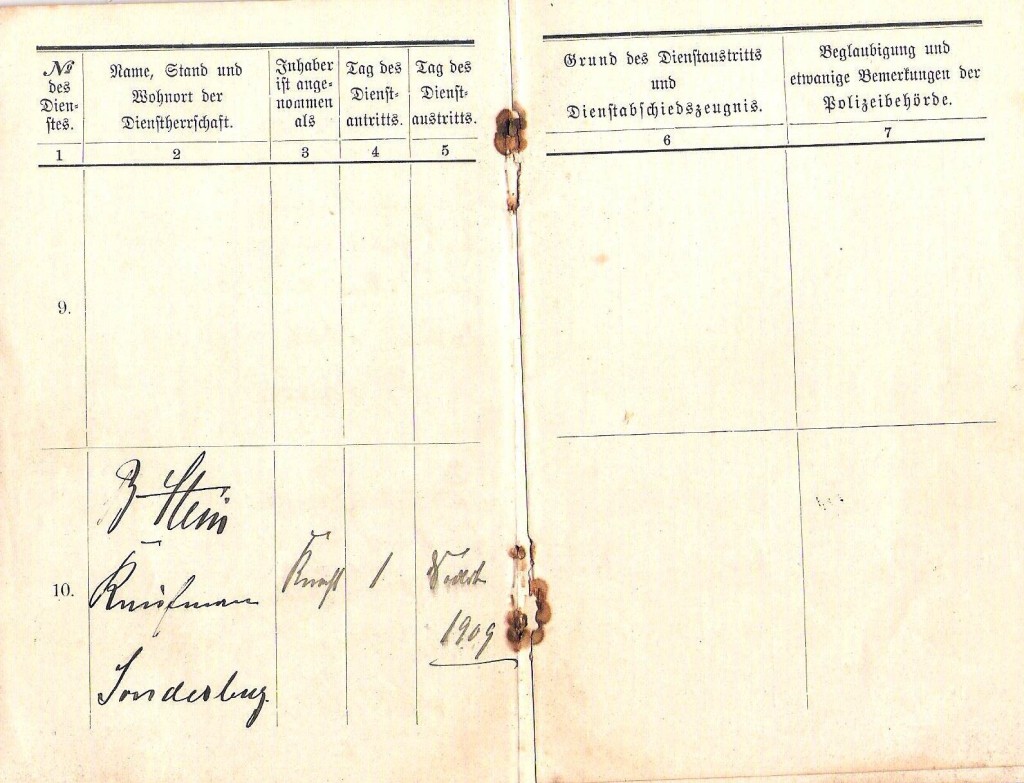 №
des
Dien-
stes.
Name, Stand und
Wohnort der
Dienstherrschaft.
Inhaber
ist ange-
nommen
als
Tag des
Dienst-
antritts.
Tag des
Dienst-
austritts.
Grund des Dienstaustritts
und
Dienstabschiedszeugnis.
Beglaubigung und
etwanige Bemerkungen der
Polizeibehörde.
1 2 3 4 5 6 7
9.
10.
Stein
Kaufmann
Sonderburg.
1
1909